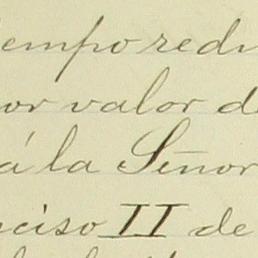 iempo redu
or valor d
á la Señor
nciso II de